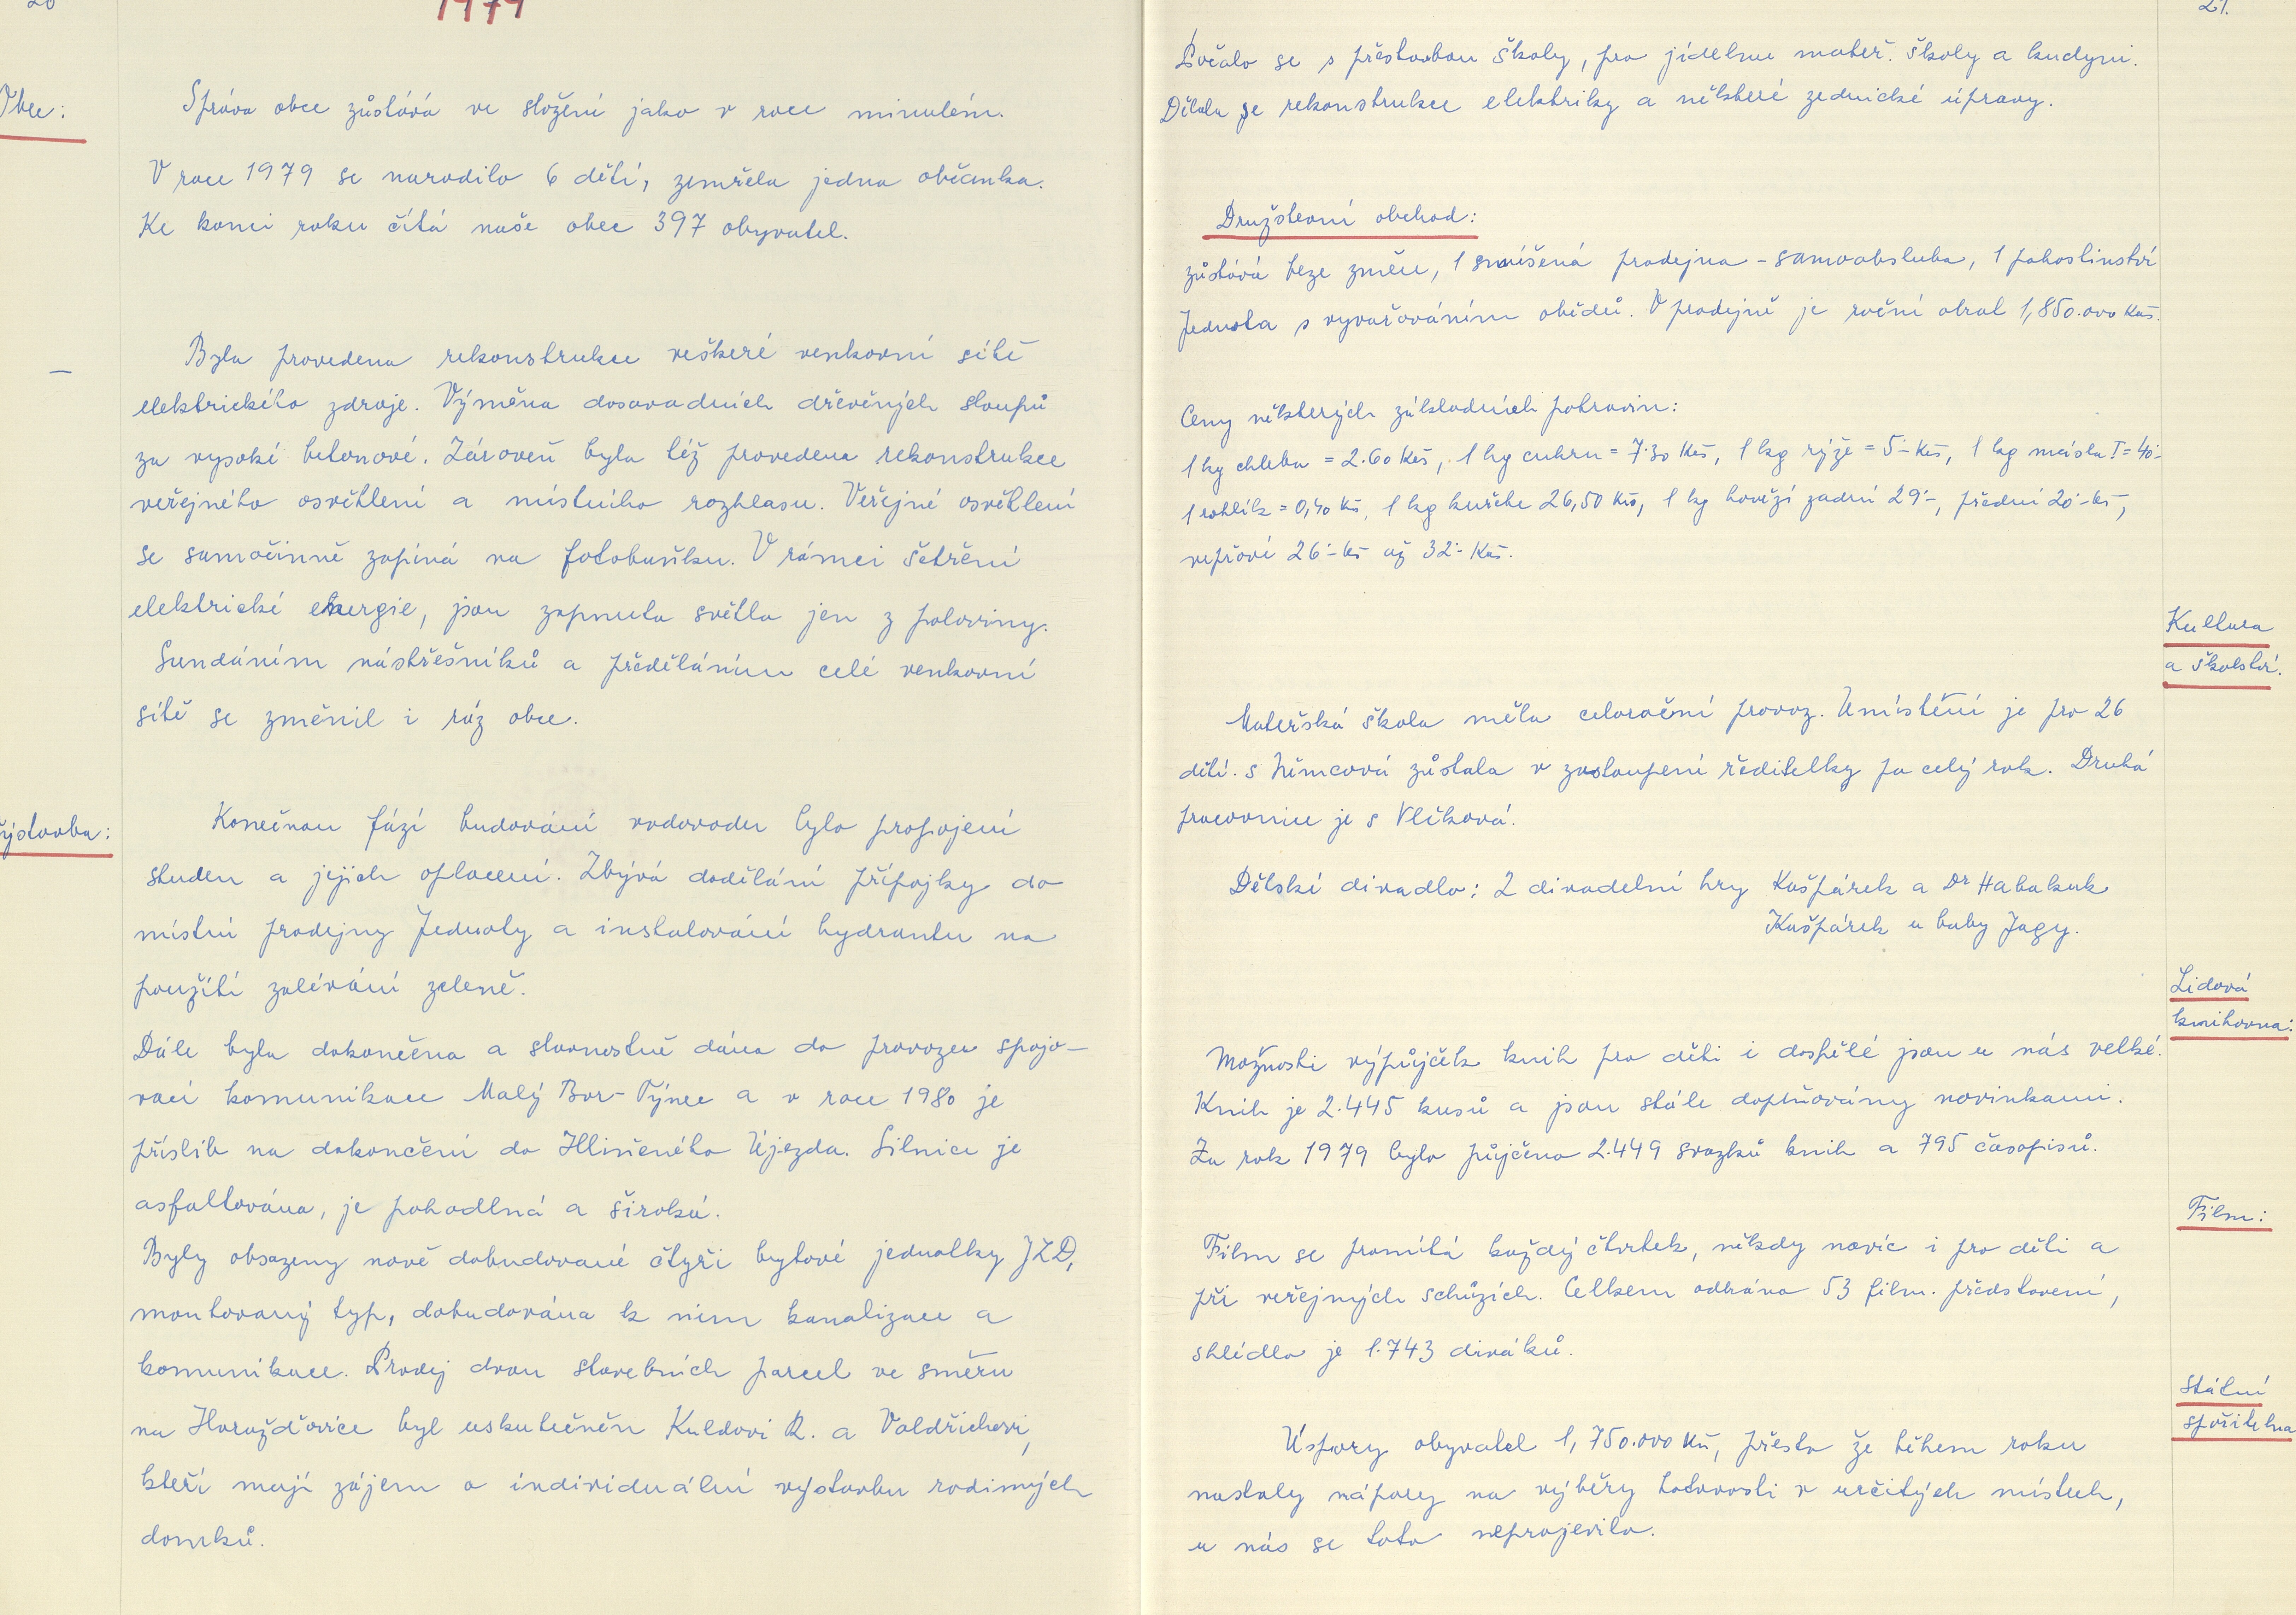 20
1979
Obec:
Správa obce zůstává ve složení jako v roce minulém.
V roce 1979 se narodilo 6 dětí, zemřela jedna občanka.
Ke konci roku čítá naše obec 397 obyvatel.
Byla provedena rekonstrukce veškeré venkovní sítě
elektrického zdroje. Výměna dosavadních dřevěných sloupů
za vysoké betonové. Zároveň byla též provedena rekonstrukce
veřejného osvětlení a místního rozhlasu. Veřejné osvětlení
se samočinně zapíná na fotobuňku. V rámci šetření
elektrické energie, jsou zapnuta světla jen z poloviny.
Sundáním nástřešníků a předěláním celé venkovní
sítě se změnil i ráz obce.
Výstavba:
Konečnou fází budování vodovodu bylo propojení
studen a jejich oplocení. Zbývá dodělání přípojky do
místní prodejny Jednoty a instalování hydrantu na
použití zalévání zeleně.
Dále byla dokončena a slavnostně dána do provozu spojo-
vací komunikace Malý Bor - Týnec a v roce 1980 je
příslib na dokončení do Hliněného Újezda. Silnice je
asfaltována, je pohodlná a široká.
Byly obsazeny nově dobudované čtyři bytové jednotky JZD,
montovaný typ, dobudována k nim kanalizace a
komunikace. Prodej dvou stavebních parcel ve směru
na Horažďovice byl uskutečněn Kuldovi R. a Valdřichovi,
kteří mají zájem o individuální výstavbu rodinných
domků.
21.
Počalo se s přestavbou školy, pro jídelnu mateř. školy a kuchyni.
Dělala se rekonstrukce elektriky a některé zednické úpravy.
Družstevní obchod:
zůstává beze změn, 1 smíšená prodejna - samoobsluha, 1 pohostinství
Jednota s vyvařováním obědů. V prodejně je roční obrat 1,850.000 Kčs.
Ceny některých základních potravin:
1 kg chleba = 2.60 Kčs, 1 kg cukru = 7.30 Kčs, 1 kg rýže = 5.- Kčs, 1 kg másla I = 40.-
1 rohlík = 0,40 Kčs, 1 kg kuřete 26,50 Kčs, 1 kg hovězí zadní 29.-, přední 20.- kčs,
vepřové 26.- kčs až 32.- Kčs.
Kultura
a školství.
Mateřská škola měla celoroční provoz. Umístění je pro 26
dětí. s Němcová zůstala v zastoupení ředitelky po celý rok. Druhá
pracovnice je s Vlčková.
Dětské divadlo: 2 divadelní hry Kašpárek a Dr Habakuk
Kašpárek u baby Jagy.
Lidová
knihovna:
Možnosti výpůjček knih pro děti i dospělé jsou u nás velké.
Knih je 2.445 kusů a jsou stále doplňovány novinkami.
Za rok 1979 bylo půjčeno 2.449 svazků knih a 795 časopisů.
Film:
Film se promítá každý čtvrtek, někdy navíc i pro děti a
při veřejných schůzích. Celkem odhráno 53 film. představení,
shlédlo je 1.743 diváků.
Státní
spořitelna
Úspory obyvatel 1,750.000 Kčs, přesto že během roku
nastaly nápory na výběry hotovosti v určitých místech,
u nás se toto neprojevilo.